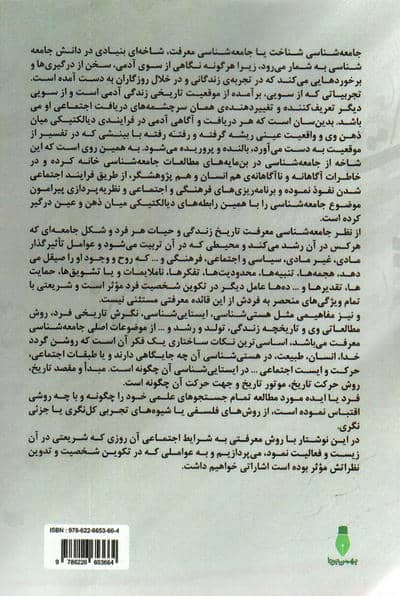 جامعه‌شناسی شناخت یا جامعه‌شناسی معرفت، شاخه‌ای بنیادی در دانش جامعه
شناسی به شمار می‌رود، زیرا هرگونه نگاهی از سوی آدمی، سخن از درگیری‌ها و
برخوردهایی می‌کند که در تجربه‌ی زندگانی و در خلال روزگاران به دست آمده است.
تجربیاتی که از سویی، برآمده از موقعیت تاریخی زندگی آدمی است و از سویی
دیگر تعریف‌کننده و تغییردهنده‌ی همان سرچشمه‌های دریافت اجتماعی او می
باشد. بدین‌سان است که هر دریافت و آگاهی آدمی در فرایندی دیالکتیکی میان
ذهن وی و واقعیت عینی ریشه گرفته و رفته رفته با بینشی که در تفسیر از
موقعیت به دست می‌آورد، بالنده و پروریده می‌شود. به همین روی است که این
شاخه از جامعه‌شناسی در بن‌مایه‌های مطالعات جامعه‌شناسی خانه کرده و در
خاطرات آگاهانه و ناآگاهانه‌ی هم انسان و هم پژوهشگر، از طریق فرایند اجتماعی
شدن نفوذ نموده و برنامه‌ریزی‌های فرهنگی و اجتماعی و نظریه‌پردازی پیرامون
موضوع جامعه‌شناسی را با همین رابطه‌های دیالکتیک میان ذهن و عین درگیر
کرده است.
از نظر جامعه‌شناسی معرفت تاریخ زندگی و حیات هر فرد و شکل جامعه‌ای که
هرکس در آن رشد می‌کند و محیطی که در آن تربیت می‌شود و عوامل تأثیرگذار
مادی، غیر مادی، سیاسی و اجتماعی، فرهنگی و ... که روح و وجود او را صیقل می
دهد، هجمه‌ها، تنبیه‌ها، محدودیت‌ها، تفکرها، ناملایمات و یا تشویق‌ها، حمایت
ها، تقدیرها و ... ده‌ها عامل دیگر در تکوین شخصیت فرد مؤثر است و شریعتی با
تمام ویژگی‌های منحصر به فردش از این قائده معرفتی مستثنی نیست.
و نیز مفاهیمی مثل هستی‌شناسی، ایستایی‌شناسی، نگرش تاریخی فرد، روش
مطالعاتی وی و تاریخچه زندگی، تولد و رشد و ... از موضوعات اصلی جامعه‌شناسی
معرفت می‌باشد، اساسی‌ترین نکات ساختاری یک فکر آن است که روشن گردد
خدا، انسان، طبیعت، در هستی‌شناسی آن چه جایگاهی دارند و یا طبقات اجتماعی،
حرکت و ایست اجتماعی ... در ایستایی‌شناسی آن چگونه است. مبدأ و مقصد تاریخ،
روش حرکت تاریخ، موتور تاریخ و جهت حرکت آن چگونه است.
فرد یا ایده مورد مطالعه تمام جستجوهای علمی خود را چگونه و با چه روشی
اقتباس نموده است، از روش‌های فلسفی یا شیوه‌های تجربی کل‌نگری یا جزئی
نگری.
در این نوشتار با روش معرفتی به شرایط اجتماعی آن روزی که شریعتی در آن
زیست و فعالیت نمود، می‌پردازیم و به عواملی که در تکوین شخصیت و تدوین
نظراتش مؤثر بوده است اشاراتی خواهیم داشت.
ISBN: 978-622-6653-66-4
9 786226 653664